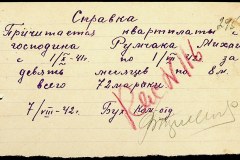 Справка
Причитается квартплаты с
господина Румчака Михаи
с 1/X-41г. по 1/VII-42г. за
девять месяцев по 8 м.
всего 72 марки.
7/VIII-42г. Бух.